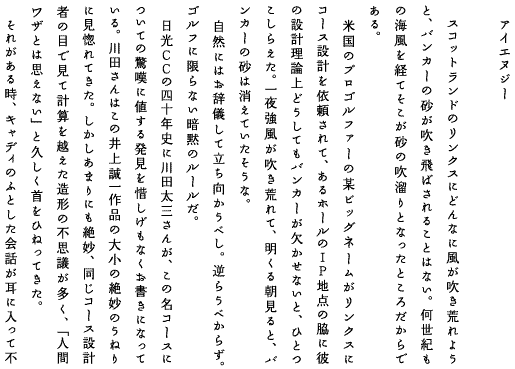 アイエヌジー
スコットランドのリンクスにどんなに風が吹き荒れよう
と、バンカーの砂が吹き飛ばされることはない。何世紀も
の海風を経てそこが砂の吹溜りとなったところだからで
ある。
米国のプロゴルファーの某ビッグネームがリンクスに
コース設計を依頼されて、あるホールのIP地点の脇に彼
の設計理論上どうしてもバンカーが欠かせないと、ひとつ
こしらえた。一夜強風が吹き荒れて、明くる朝見ると、バ
ンカーの砂は消えていたそうな。
自然にはお辞儀して立ち向かうべし。逆らうべからず。
ゴルフに限らない暗黙のルールだ。
日光CCの四十年史に川田太三さんが、この名コースに
ついての驚嘆に値する発見を惜しげもなくお書きになって
いる。川田さんはこの井上誠一作品の大小の絶妙のうねり
に見惚れてきた。しかしあまりにも絶妙、同じコース設計
者の目で見て計算を越えた造形の不思議が多く、「人間
ワザとは思えない」と久しく首をひねってきた。
それがある時、キャディのふとした会話が耳に入って不